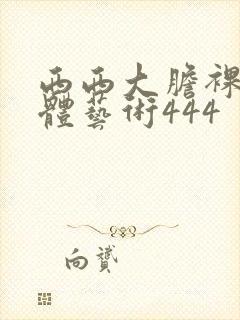 西西大膽裸
體藝術444
向贊